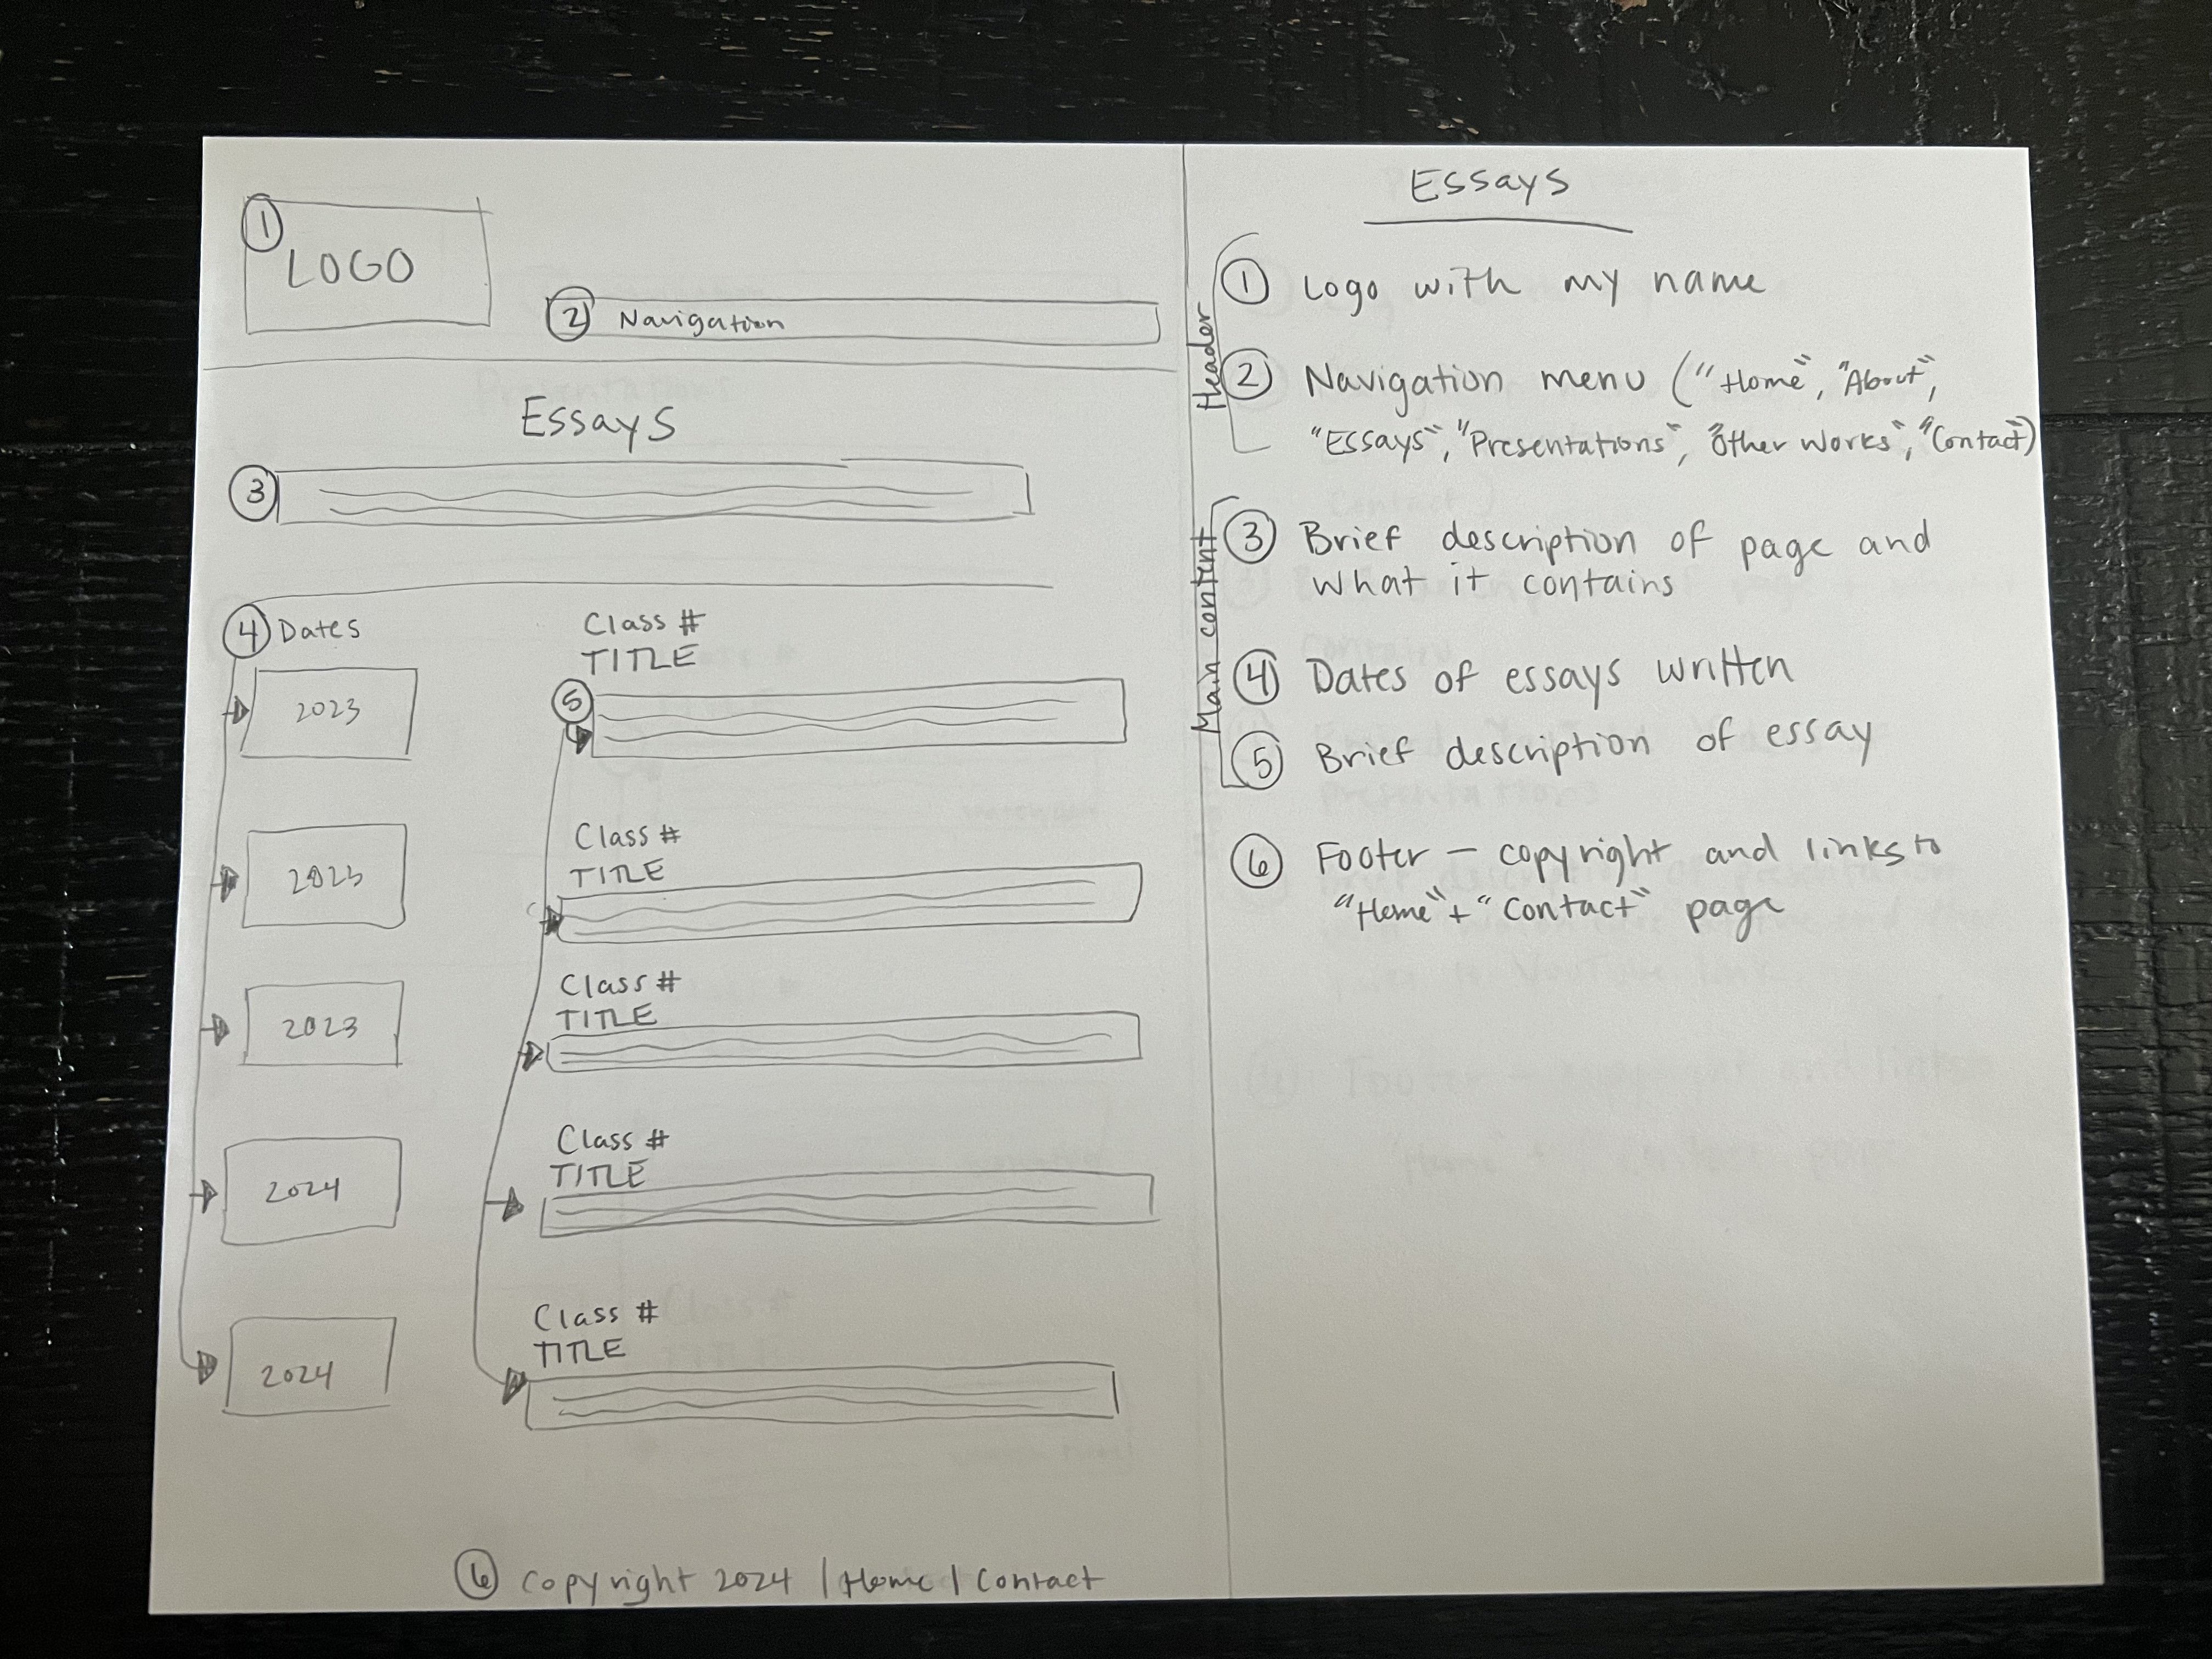 ① LOGO
② Navigation
Essays
③
④ Dates
Class #
TITLE
2023
⑤
Class #
TITLE
2023
Class #
TITLE
2023
Class #
TITLE
2024
Class #
TITLE
2024
⑥ Copyright 2024 | Home | Contact
Essays
Header
① Logo with my name
② Navigation menu ("Home", "About",
"Essays", "Presentations", "Other Works", "Contact")
Main content
③ Brief description of page and
what it contains
④ Dates of essays written
⑤ Brief description of essay
⑥ Footer – copyright and links to
"Home" + "Contact" page